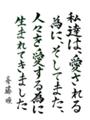 私達は、愛される
為に、そしてまた、
人々を愛する為に
生まれてきました。
斉藤暉